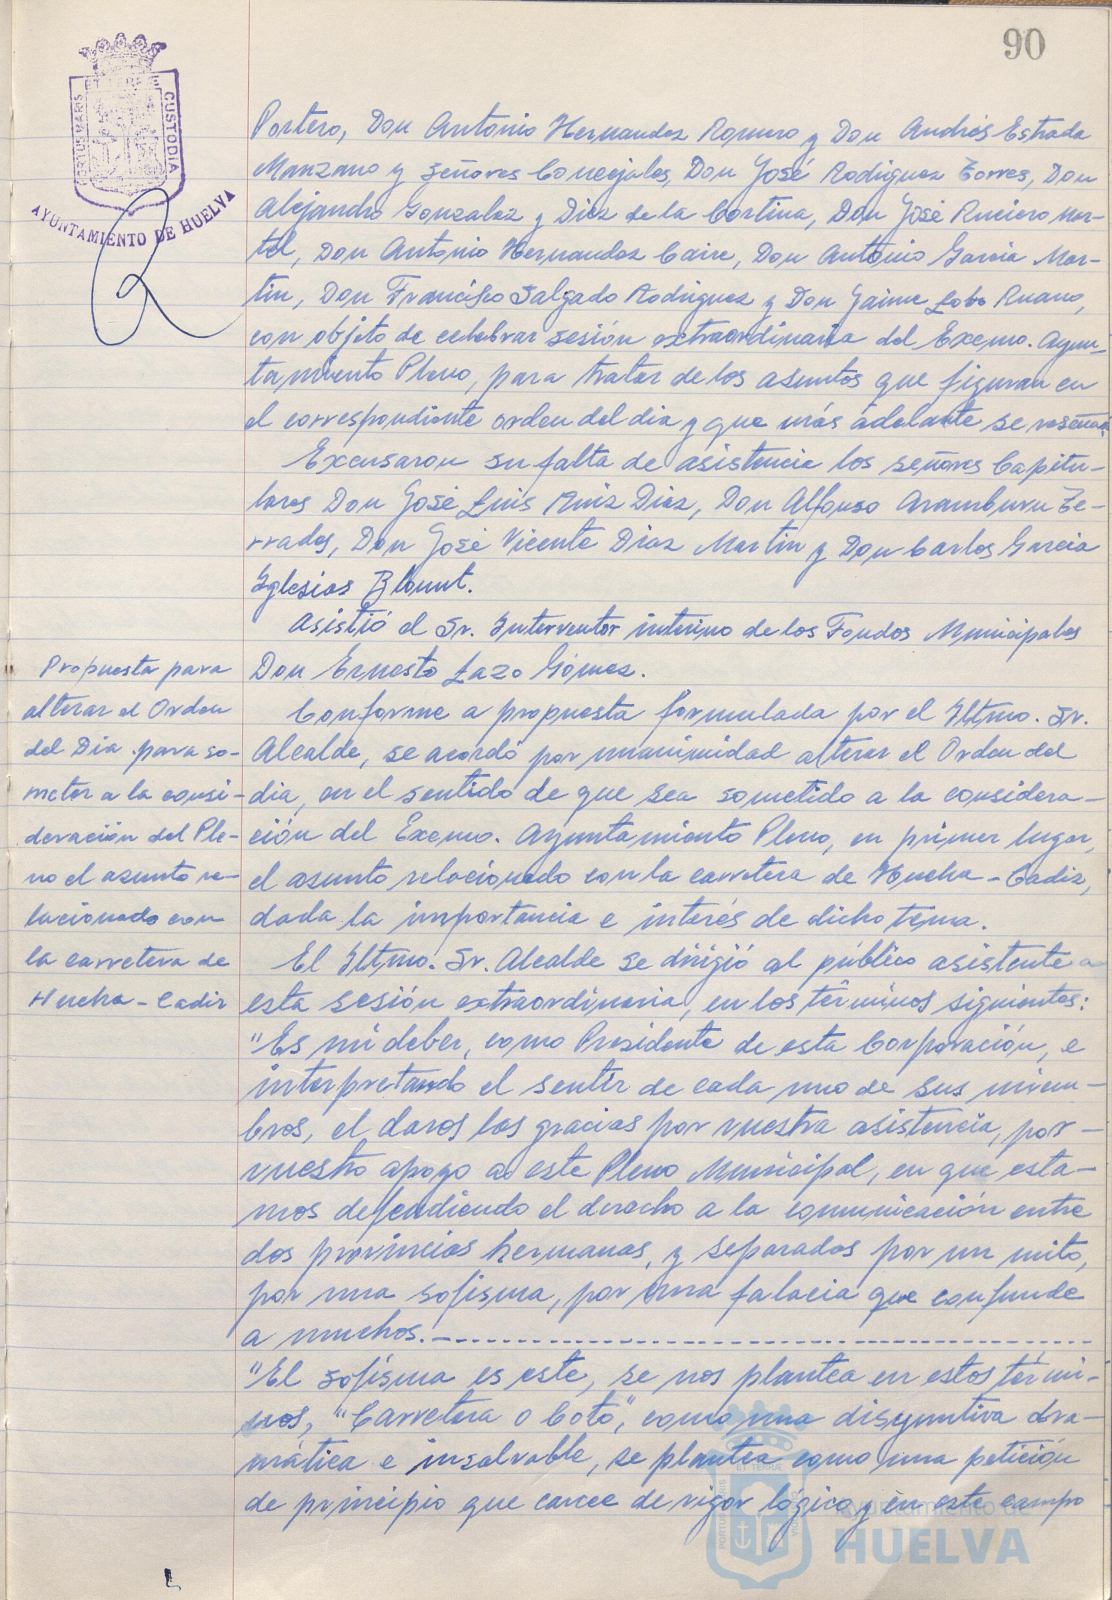 90
PORTUS MARIS ET TERRE CUSTODIA
AYUNTAMIENTO DE HUELVA
Portero, Don Antonio Hernandez Romero y Don Andrés Estrada
Manzano y señores Concejales, Don José Rodriguez Torres, Don
Alejandro Gonzalez y Diez de la Cortina, Don José Ruciero Mar-
tel, Don Antonio Hernandez Caire, Don Antonio Garcia Mar-
tin, Don Francisco Salgado Rodriguez y Don Jaime Lobo Ruano,
con objeto de celebrar sesión extraordinaria del Excmo. Ayun-
tamiento Pleno, para tratar de los asuntos que figuran en
el correspondiente orden del dia y que más adelante se reseñan.
Excusaron su falta de asistencia los señores Capitu-
lares Don José Luis Ruiz Diaz, Don Alfonso Aramburu Te-
rrades, Don José Vicente Diaz Martin y Don Carlos Garcia
Iglesias Blount.
Asistió el Sr. Interventor interino de los Fondos Municipales
Don Ernesto Lazo Gómez.
Propuesta para
alterar el Orden
del Dia para so-
meter a la consi-
deración del Ple-
no el asunto re-
lacionado con
la carretera de
Huelva-Cadiz
Conforme a propuesta formulada por el Iltmo. Sr.
Alcalde, se acordó por unanimidad alterar el Orden del
dia, en el sentido de que sea sometido a la considera-
ción del Excmo. Ayuntamiento Pleno, en primer lugar,
el asunto relacionado con la carretera de Huelva-Cadiz,
dada la importancia e interés de dicho tema.
El Iltmo. Sr. Alcalde se dirigió al público asistente a
esta sesión extraordinaria, en los términos siguientes:
"Es mi deber, como Presidente de esta Corporación, e
interpretando el sentir de cada uno de sus miem-
bros, el daros las gracias por vuestra asistencia, por-
vuestro apoyo a este Pleno Municipal, en que esta-
mos defendiendo el derecho a la comunicación entre
dos provincias hermanas, y separadas por un mito,
por una sofisma, por una falacia que confunde
a muchos.-
"El sofisma es este, se nos plantea en estos térmi-
nos, "Carretera o Coto", como una disyuntiva dra-
mática e insalvable, se plantea como una petición
de principio que carece de rigor lógico y en este campo
Ayuntamiento de
HUELVA